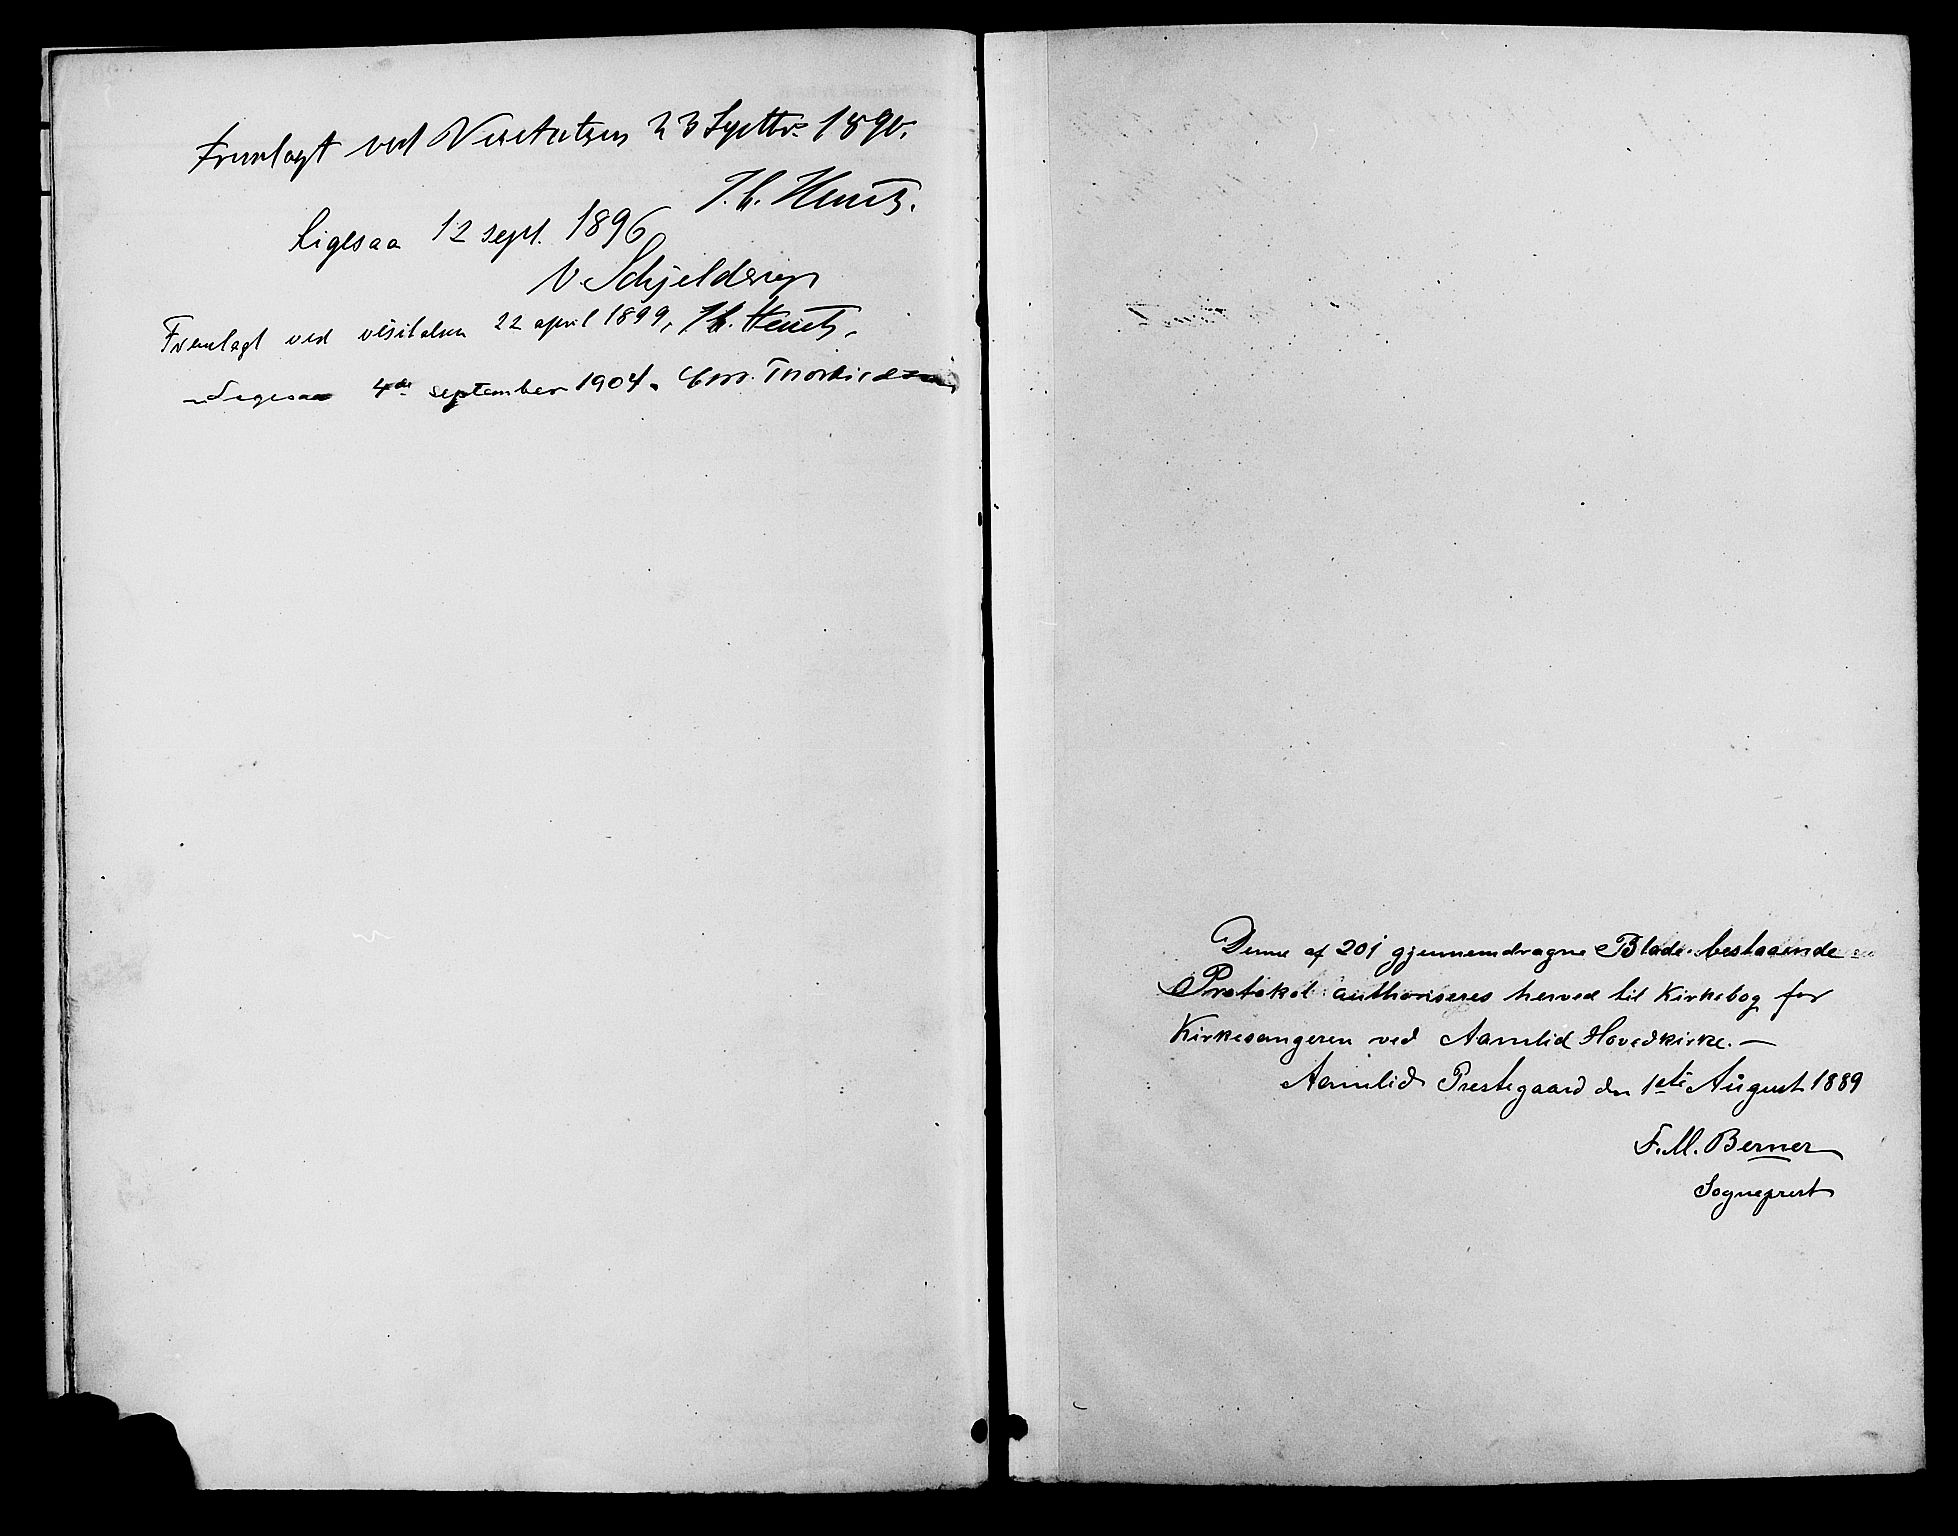 Fremlagt ved Visitatsen 23 Septbr. 1890.
J. C. Heuch.
Ligesaa 12 sept. 1896
N. Schjelderup
Fremlagt ved visitatsen 22 april 1899, J. C. Heuch.
Ligesaa 4de september 1904.
Denne af 201 gjennemdragne Blade bestaaende
Protokol authoriseres herved til Kirkebog for
Kirkesangeren ved Aamlid Hovedkirke. —
Aamlid Prestegaard den 1ste August 1889
F. M. Berner
Sogneprest